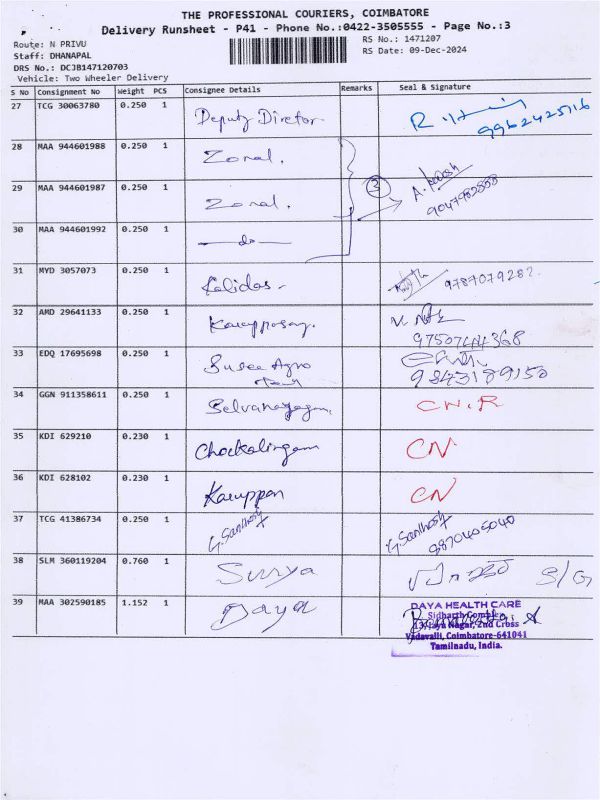 THE PROFESSIONAL COURIERS, COIMBATORE
Delivery Runsheet - P41 - Phone No.:0422-3505555 - Page No.:3
Route: N PRIVU
Staff: DHANAPAL
DRS No.: DCJB147120703
Vehicle: Two Wheeler Delivery
RS No.: 1471207
RS Date: 09-Dec-2024
S No Consignment No Weight PCS Consignee Details Remarks Seal & Signature
27 TCG 30063780 0.250 1 Deputy Diretor. 9962425716
28 MAA 944601988 0.250 1 Zonal.
29 MAA 944601987 0.250 1 Zonal. 3 9047982858
30 MAA 944601992 0.250 1 —do—
31 MYD 3057073 0.250 1 Kalidas- 9787079282.
32 AMD 29641133 0.250 1 Karupposamy. 9750744368
33 EDQ 17695698 0.250 1 Susee Agro 9843189150
34 GGN 911358611 0.250 1 Selvanayagam. CN.R
35 KDI 629210 0.230 1 Chockalingam CN
36 KDI 628102 0.230 1 Karuppan CN
37 TCG 41386734 0.250 1 G.Santhosh G.Santhosh 9870405040
38 SLM 360119204 0.760 1 Surya S/G
39 MAA 302590185 1.152 1 Daya
DAYA HEALTH CARE
Sidharth Complex
Jaya Nagar, 2nd Cross
Vadavalli, Coimbatore-641041
Tamilnadu, India.